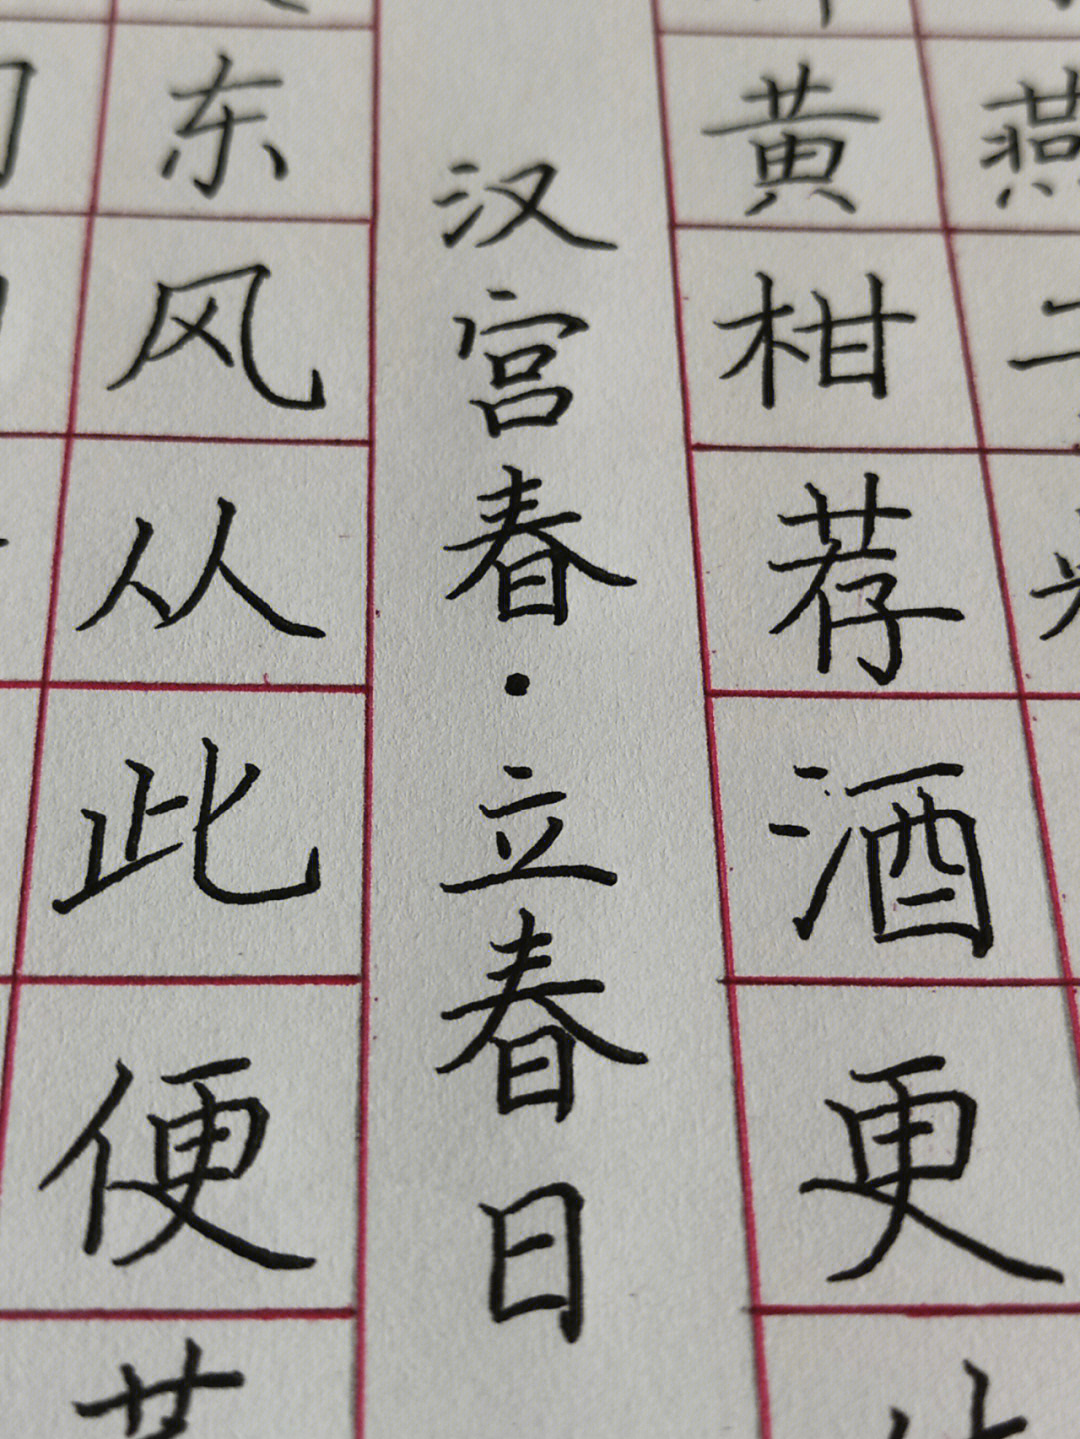 燕
黄柑荐酒更
汉宫春·立春日
东风从此便